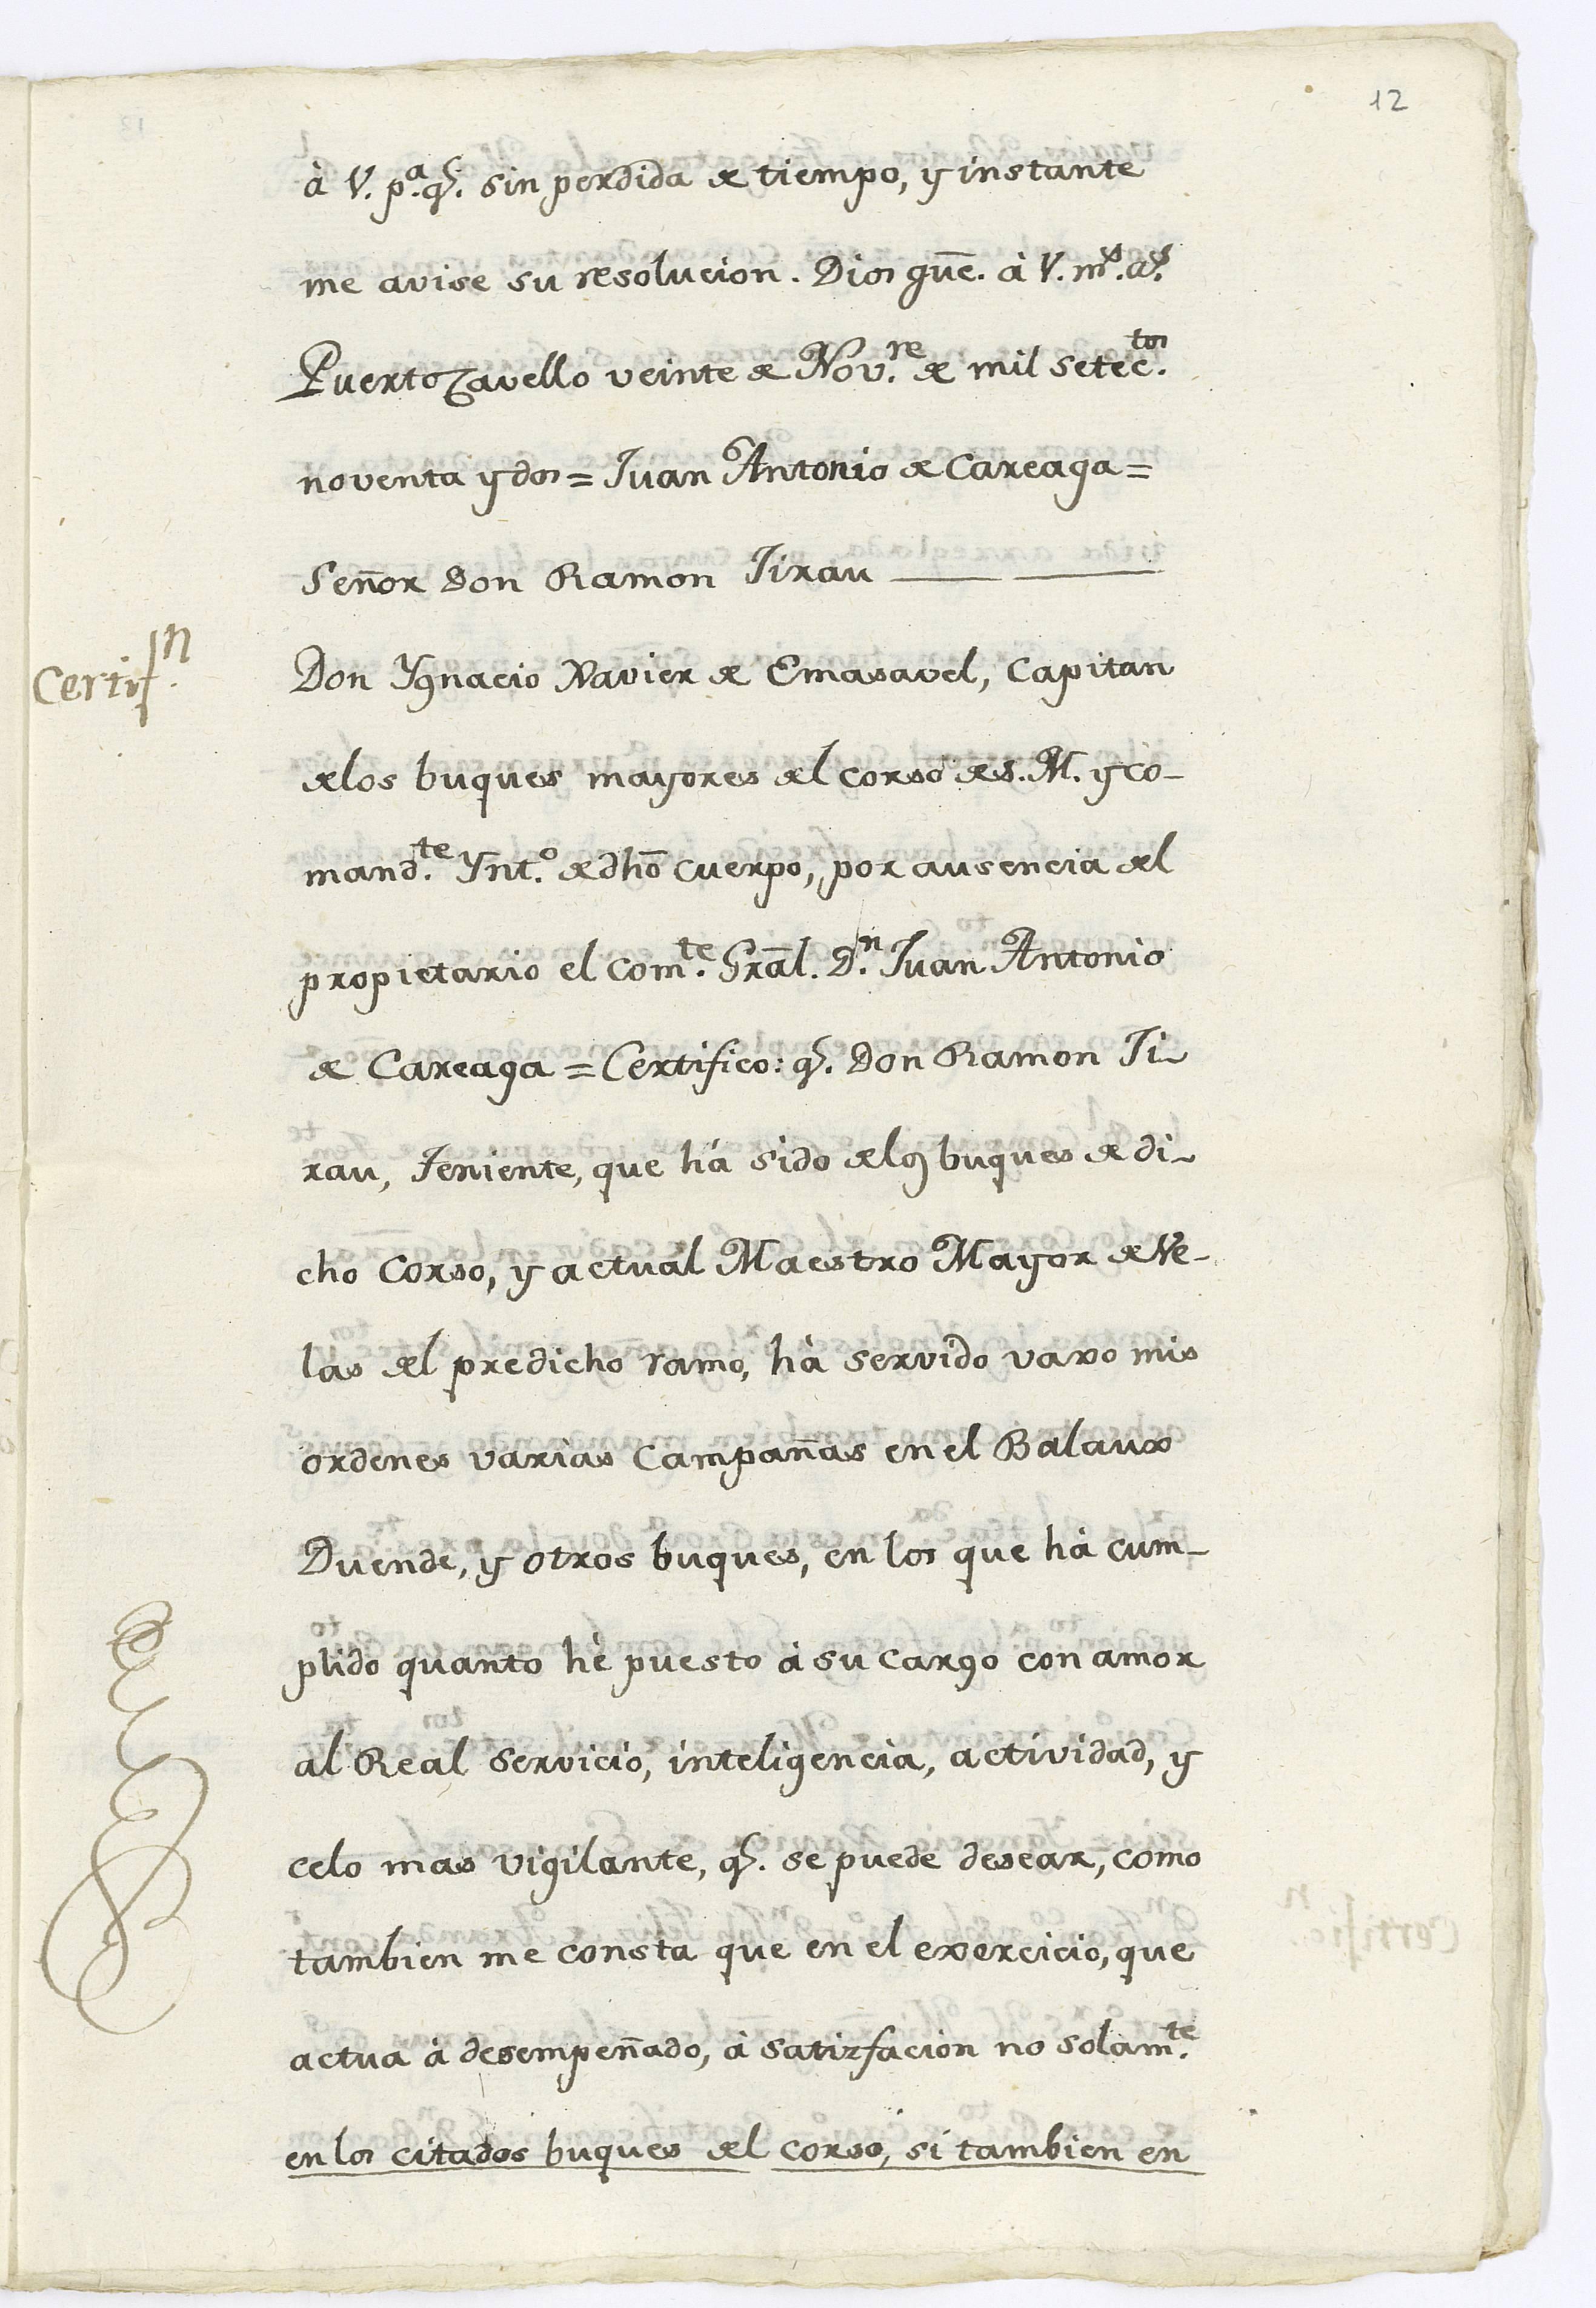 12
à V. p.ª q.e sin perdida de tiempo, y instante
me avise su resolucion. Dios gũe. à V. m.s a.s
Puerto Cavello veinte de Nov.re de mil setec.tos
noventa y dos = Juan Antonio de Careaga =
Señor Don Ramon Jirau
Certif.n
Don Ygnacio Xavier de Emasavel, Capitan
de los buques mayores del corso de S. M. y co-
mand.te Ynt.o de dhõ cuerpo, por ausencia del
propietario el com.te Grãl. D.n Juan Antonio
de Careaga = Certifico: q.e Don Ramon Ji-
rau, Teniente, que há sido de los buques de di-
cho Corso, y actual Maestro Mayor de Ve-
las del predicho ramo, hà servido vaxo mis
ordenes varias Campañas en el Balaux
Duende, y otros buques, en los que hà cum-
plido quanto hè puesto à su cargo con amor
al Real servicio, inteligencia, actividad, y
celo mas vigilante, q.e se puede desear, como
tambien me consta que en el exercicio, que
actua à desempeñado, à satizfacion no solam.te
en los citados buques del corso, si tambien en